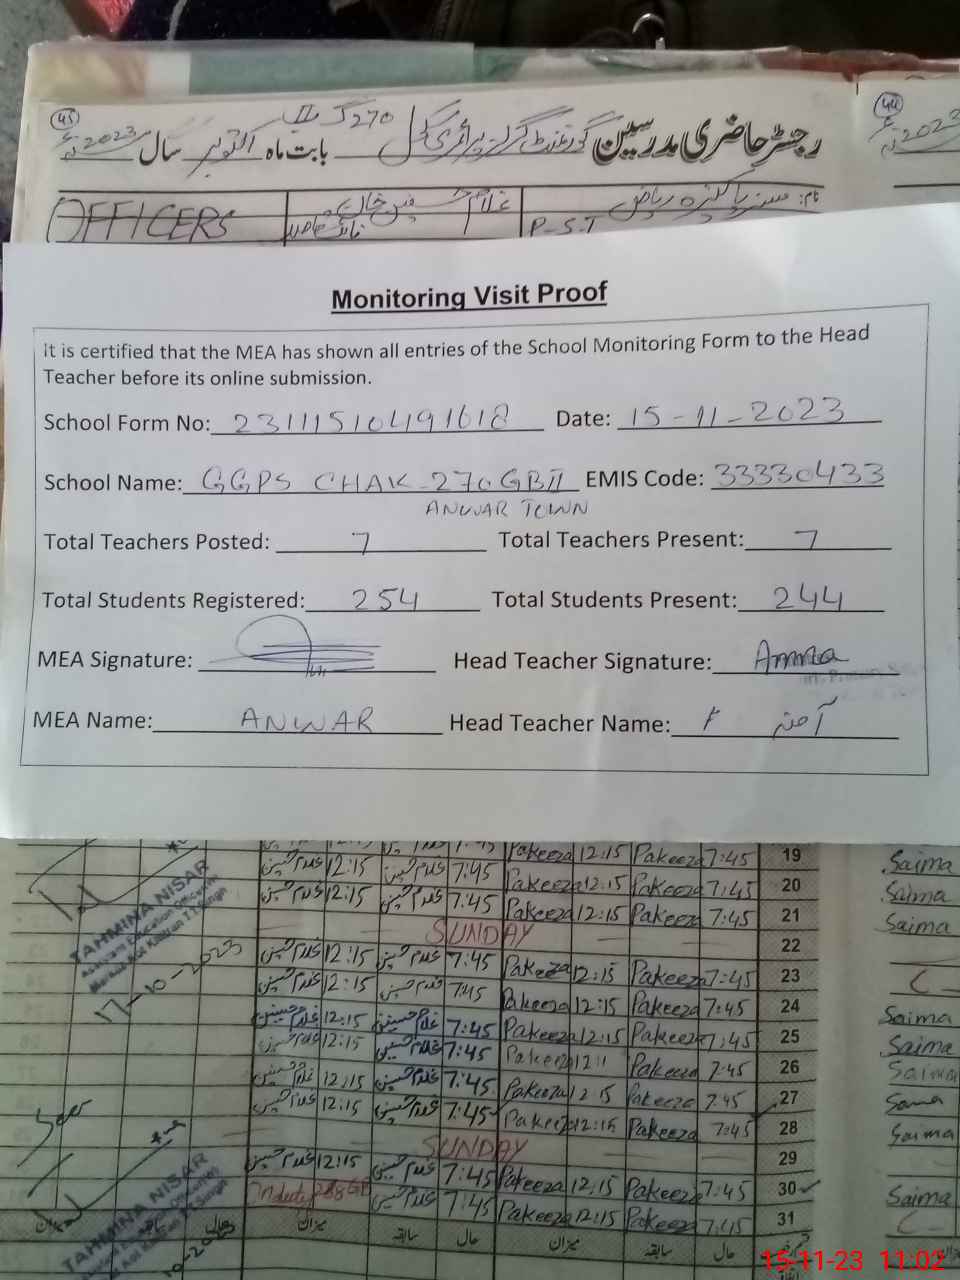 45
44
2023
رجسٹر حاضری مدرسین گورنمنٹ گرلز پرائمری سکول 270 گ ب II بابت ماہ اکتوبر سال 2023
نام: مسز پاکیزہ ریاض
غلام حسین
OFFICERS
P-S-T
Monitoring Visit Proof
It is certified that the MEA has shown all entries of the School Monitoring Form to the Head
Teacher before its online submission.
School Form No: 23111510491618 Date: 15-11-2023
School Name: GGPS CHAK 270GBII EMIS Code: 33330433
ANWAR TOWN
Total Teachers Posted: 7 Total Teachers Present: 7
Total Students Registered: 254 Total Students Present: 244
MEA Signature: Head Teacher Signature: Amna
MEA Name: ANWAR Head Teacher Name: آمنہ
غلام حسین 12:15 غلام حسین 7:45 Pakeeza 12:15 Pakeeza 7:45 19 Saima
غلام حسین 12:15 غلام حسین 7:45 Pakeeza 12:15 Pakeeza 7:45 20 Saima
غلام حسین 12:15 غلام حسین 7:45 Pakeeza 12:15 Pakeeza 7:45 21 Saima
SUNDAY 22
غلام حسین 12:15 غلام حسین 7:45 Pakeeza 12:15 Pakeeza 7:45 23
غلام حسین 12:15 غلام حسین 7:45 Pakeeza 12:15 Pakeeza 7:45 24 Saima
غلام حسین 12:15 غلام حسین 7:45 Pakeeza 12:15 Pakeeza 7:45 25 Saima
غلام حسین 12:15 غلام حسین 7:45 Pakeeza Pakeeza 7:45 26 Saima
غلام حسین 12:15 غلام حسین 7:45 Pakeeza 12:15 Pakeeza 7:45 27 Sama
غلام حسین 12:15 غلام حسین 7:45 Pakeeza 12:15 Pakeeza 7:45 28 Saima
SUNDAY 29
غلام حسین 12:15 غلام حسین 7:45 Pakeeza 12:15 Pakeeza 7:45 30 Saima
غلام حسین 7:45 Pakeeza 12:15 Pakeeza 7:45 31
میزان سابقہ حال میزان سابقہ حال میزان سابقہ حال
TAHMINA NISAR
Assistant Education Officer
17-10-2023
TAHMINA NISAR
Assistant Education Officer
15-11-23 11:02